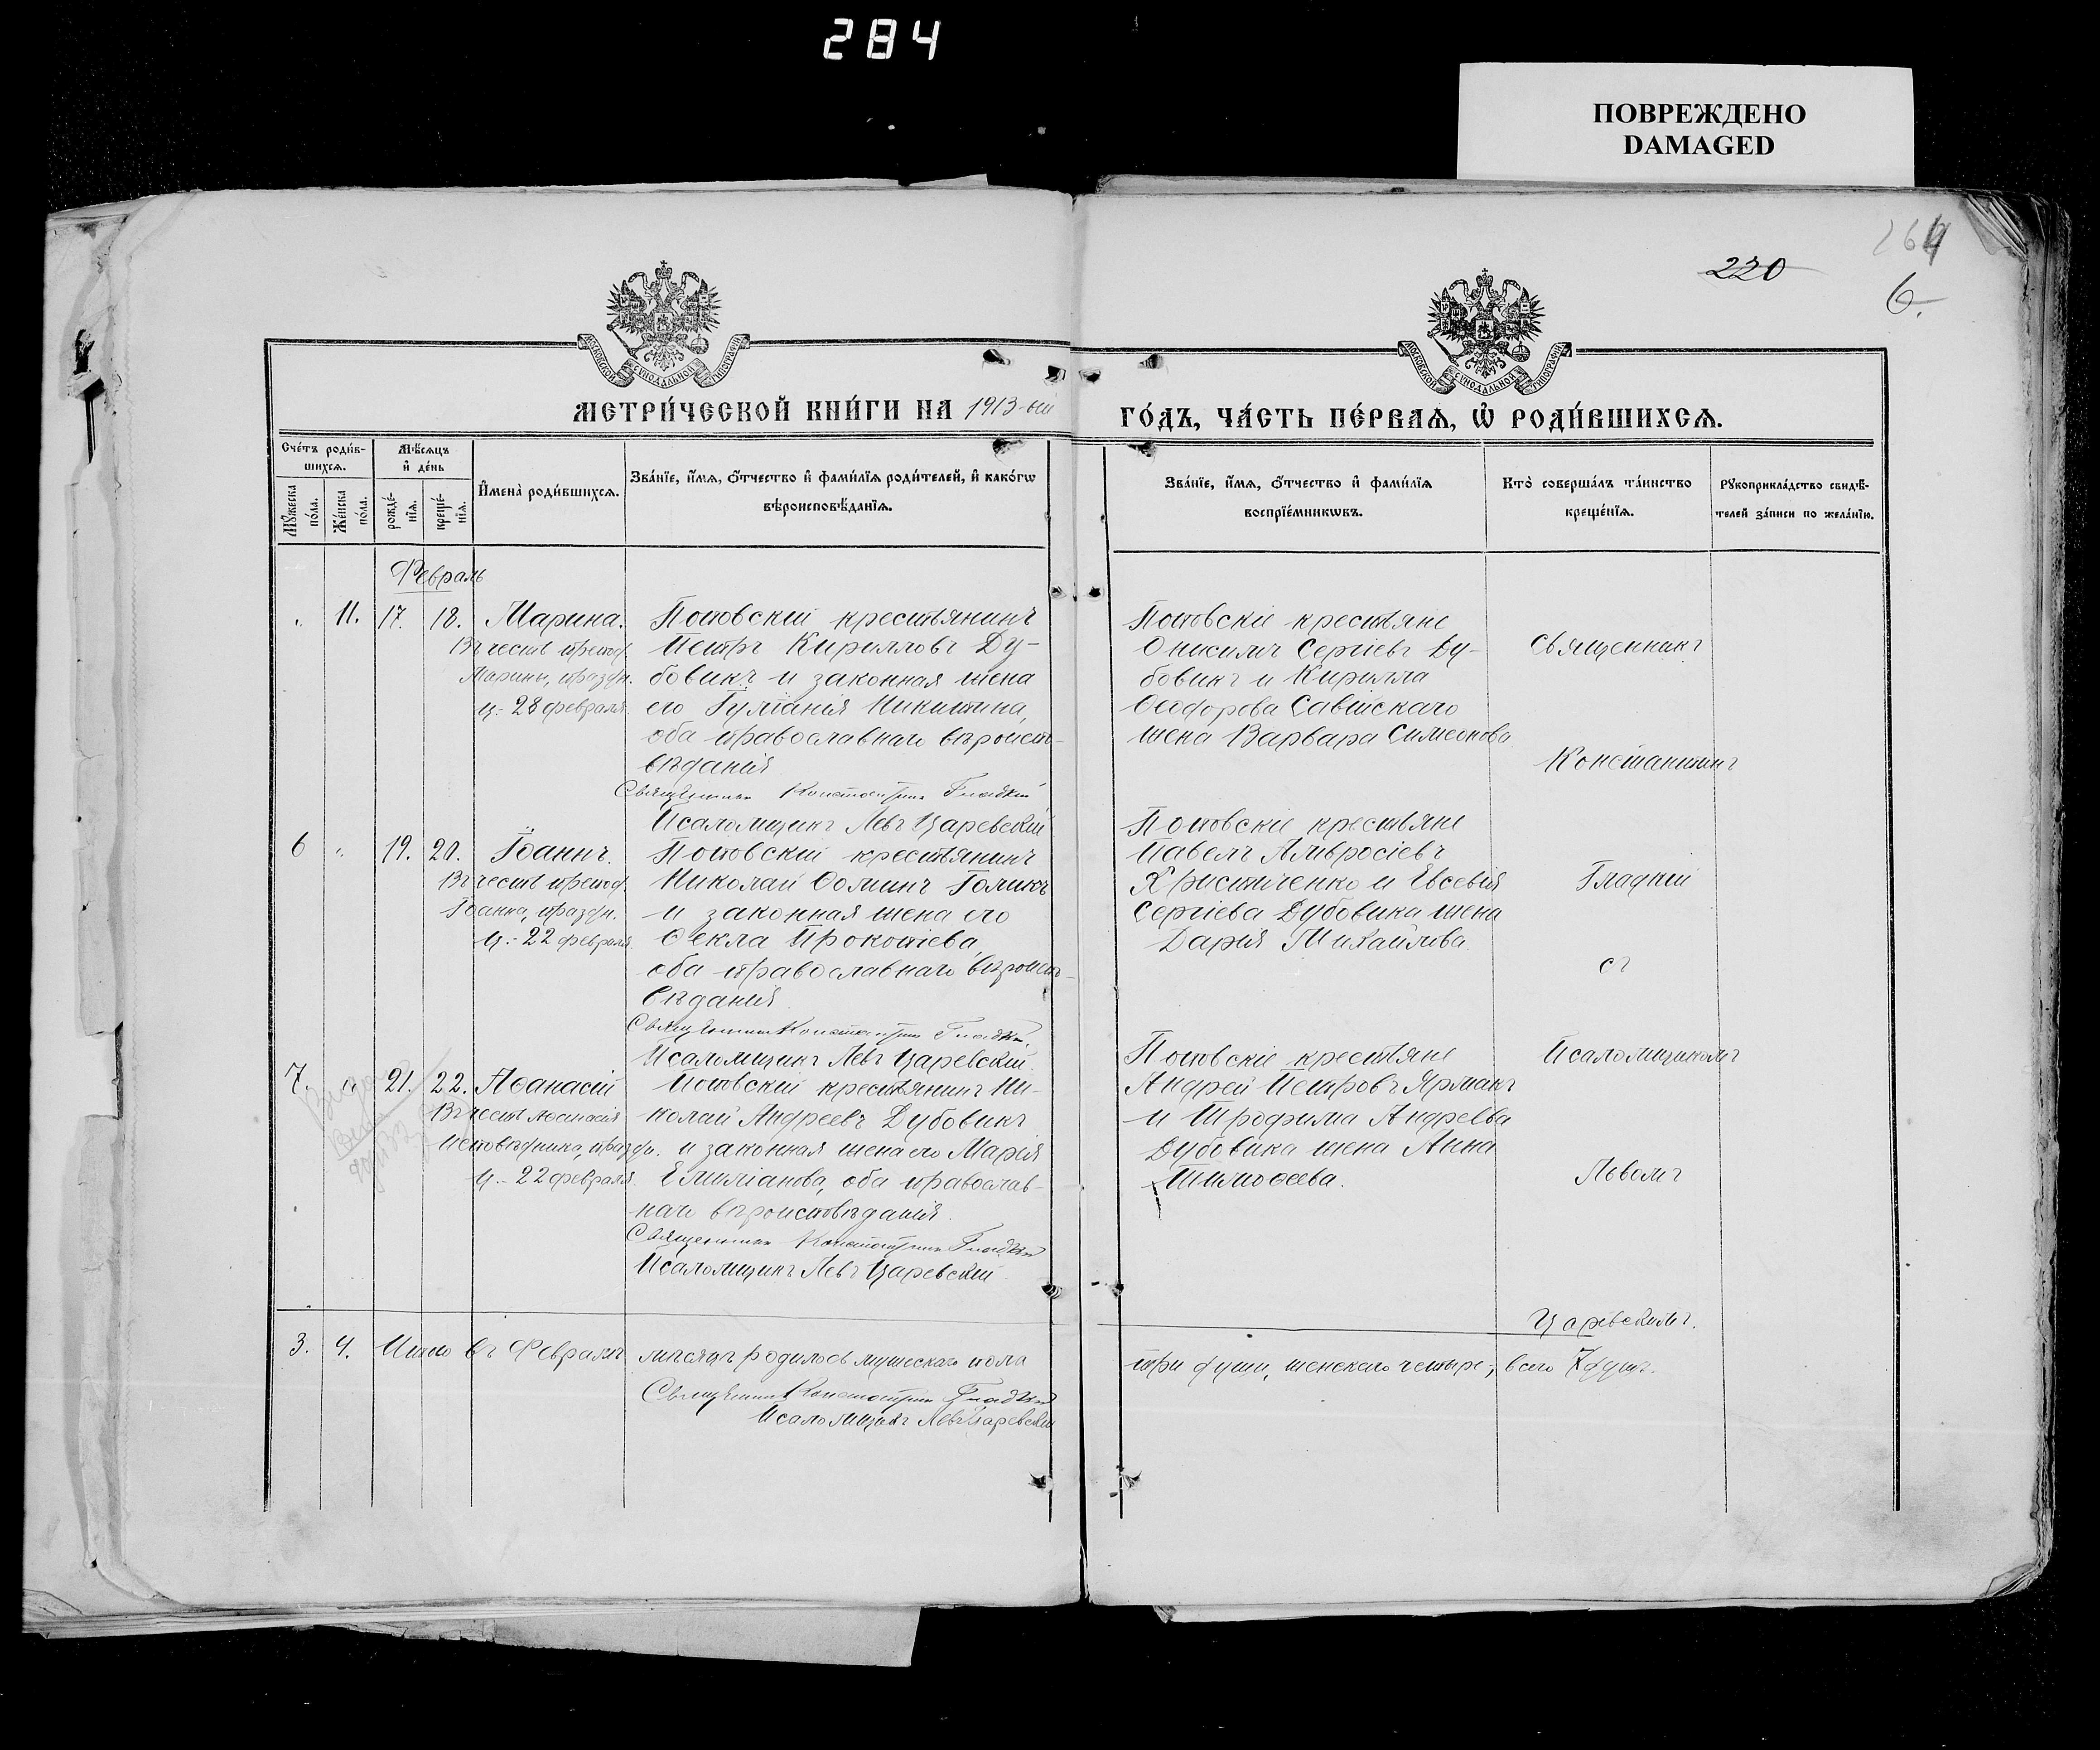 284
ПОВРЕЖДЕНО
DAMAGED
264
220
6.
МОСКОВСКОЙ СѴНОДАЛЬНОЙ ТИПОГРАФІИ
МОСКОВСКОЙ СѴНОДАЛЬНОЙ ТИПОГРАФІИ
МЕТРИ́ЧЕСКОЙ КНИ́ГИ НА 1913-ый
ГО́ДЪ, ЧА́СТЬ ПЕ́РВАѦ, Ѡ҆ РОДИ́ВШИХСѦ.
Сче́тъ роди́в-
шихсѧ.
Мꙋ́жеска
по́ла.
Же́нска
по́ла.
Мѣ́сѧцъ
и҆ де́нь
рожде́-
нїѧ.
креще́-
нїѧ.
И҆мена̀ роди́вшихсѧ.
Зва́нїе, и҆́мѧ, ѻ҆́тчество и҆ фами́лїѧ роди́телей, и҆ како́гѡ
вѣроисповѣ́данїѧ.
Зва́нїе, и҆́мѧ, ѻ҆́тчество и҆ фами́лїѧ
воспрїе́мникѡвъ.
Кто̀ соверша́лъ та́инство
креще́нїѧ.
Рꙋкоприкла́дство свидѣ́-
телей за́писи по жела́нїю.
Февраль
" 11. 17. 18. Марина.
Въ честь препод.
Марины, праздн.
ц. 28 февраля.
Поповскій крестьянинъ
Петръ Кирилловъ Ду-
бовикъ и законная жена
его Іуліанія Никитина,
оба православнаго вѣроиспо-
вѣданія
Священникъ Константинъ Гладкій
Псаломщикъ Левъ Царевскій
Поповскіе крестьяне
Онисимъ Сергіевъ Ду-
бовикъ и Кирилла
Ѳеодорова Савійскаго
жена Варвара Симеонова
Священникъ
Константинъ
6 " 19. 20. Іоаннъ.
Въ честь препод.
Іоанна, праздн.
ц. 22 февраля.
Поповскій крестьянинъ
Николай Ѳоминъ Голикъ
и законная жена его
Ѳекла Прокопіева,
оба православнаго вѣроиспо-
вѣданія.
Священникъ Константинъ Гладкій.
Псаломщикъ Левъ Царевскій.
Поповскіе крестьяне
Павелъ Амвросіевъ
Христиченко и Евсевія
Сергіева Дубовика жена
Дарія Михайлова.
Гладкій
съ
7. " 21. 22. Аѳанасій
Въ честь Аѳанасія
исповѣдника, праздн.
ц. 22 февраля.
Поповскій крестьянинъ Ни-
колай Андреевъ Дубовикъ
и законная жена его Марія
Емиліанова, оба православ-
наго вѣроисповѣданія.
Священникъ Константинъ Гладкій
Псаломщикъ Левъ Царевскій.
Поповскіе крестьяне
Андрей Петровъ Ярмакъ
и Трофима Андреева
Дубовика жена Анна
Тимоѳеева.
Псаломщикомъ
Львомъ
Царевскимъ.
3. 4. Итого въ Февралѣ мѣсяцѣ родилось мужескаго пола
три души, женскаго четыре, всего 7 душъ.
Священникъ Константинъ Гладкій
Псаломщикъ Левъ Царевскій